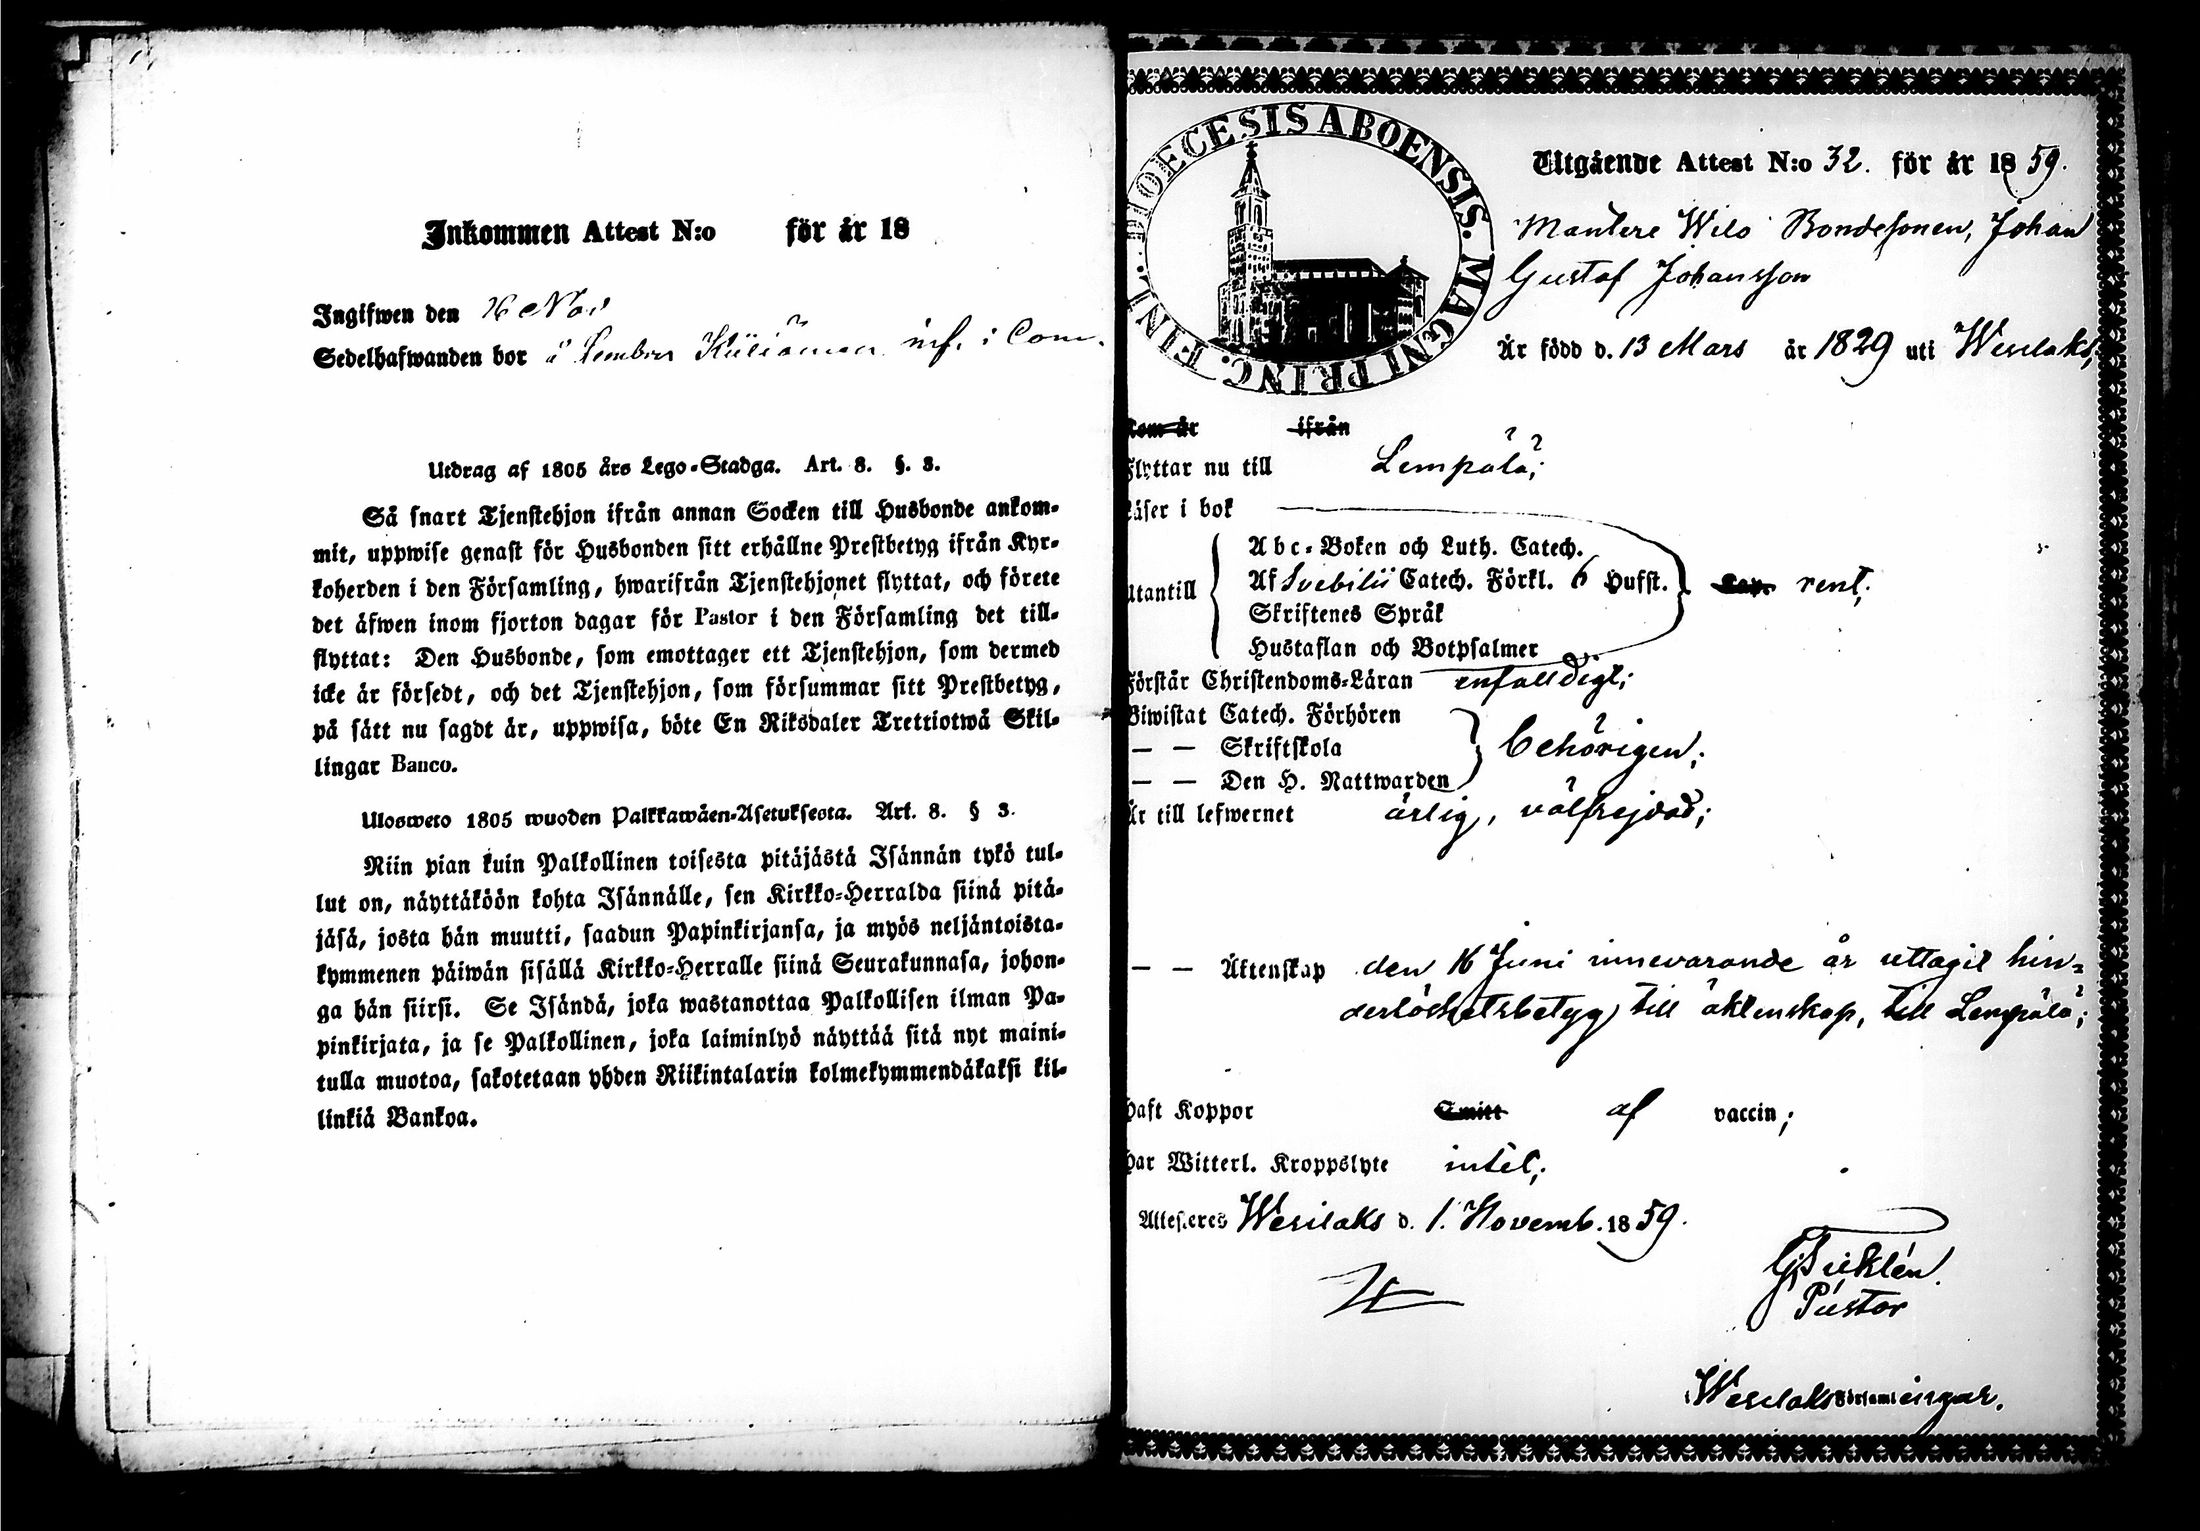 Inkommen Attest N:o för år 18
Ingifwen den 26 Nov
Sedelhafwanden bor å inf. i Com.
Utdrag af 1805 års Lego-Stadga. Art. 8. §. 3.
Så snart Tjenstehjon ifrån annan Socken till Husbonde ankom-
mit, uppwise genast för Husbonden sitt erhållne Prestbetyg ifrån Kyr-
koherden i den Församling, hwarifrån Tjenstehjonet flyttat, och förete
det äfwen inom fjorton dagar för Pastor i den Församling det till-
flyttat: Den Husbonde, som emottager ett Tjenstehjon, som dermed
icke är försedt, och det Tjenstehjon, som försummar sitt Prestbetyg,
på sätt nu sagdt är, uppwisa, böte En Riksdaler Trettiotwå Skil-
lingar Banco.
Ulosweto 1805 wuoden Palkkawäen-Asetuksesta. Art. 8. § 3.
Niin pian kuin Palkollinen toisesta pitäjästä Isännän tykö tul-
lut on, näyttäköön kohta Isännälle, sen Kirkko-Herralda siinä pitä-
jäsä, josta hän muutti, saadun Papinkirjansa, ja myös neljäntoista-
kymmenen päiwän sisällä Kirkko-Herralle siinä Seurakunnasa, johon-
ga hän siirsi. Se Isändä, joka wastanottaa Palkollisen ilman Pa-
pinkirjata, ja se Palkollinen, joka laiminlyö näyttää sitä nyt maini-
tulla muotoa, sakotetaan yhden Riikintalarin kolmekymmendäkaksi kil-
linkiä Bankoa.
DIOECESIS ABOENSIS. MAGNI PRINC. FINL.
Utgående Attest N:o 32. för år 1859.
Mantere Wilo Bondesonen, Johan
Gustaf Johansson
Är född d. 13 Mars år 1829 uti Wesilaks;
Kom år ifrån
Flyttar nu till Lempälä;
Läser i bok
Abc-Boken och Luth. Catech.
Utantill Af Svebilii Catech. Förkl. 6 Hufst. rent;
Skriftenes Språk
Hustaflan och Botpsalmer
Förstår Christendoms-Läran enfalldigt;
Biwistat Catech. Förhören
— — Skriftskola behörigen;
— — Den H. Nattwarden
Är till lefwernet ärlig, välfrejdad;
— — Äktenskap den 16 Juni innevarande år uttagit hin-
derlöshetsbetyg till äktenskap, till Lempälä;
Haft Koppor Smitt af vaccin;
Har Witterl. Kroppslyte intet;
Attesteres Wesilaks d. 1. Novemb. 1859.
Pastor
Wesilaks Församlingar.